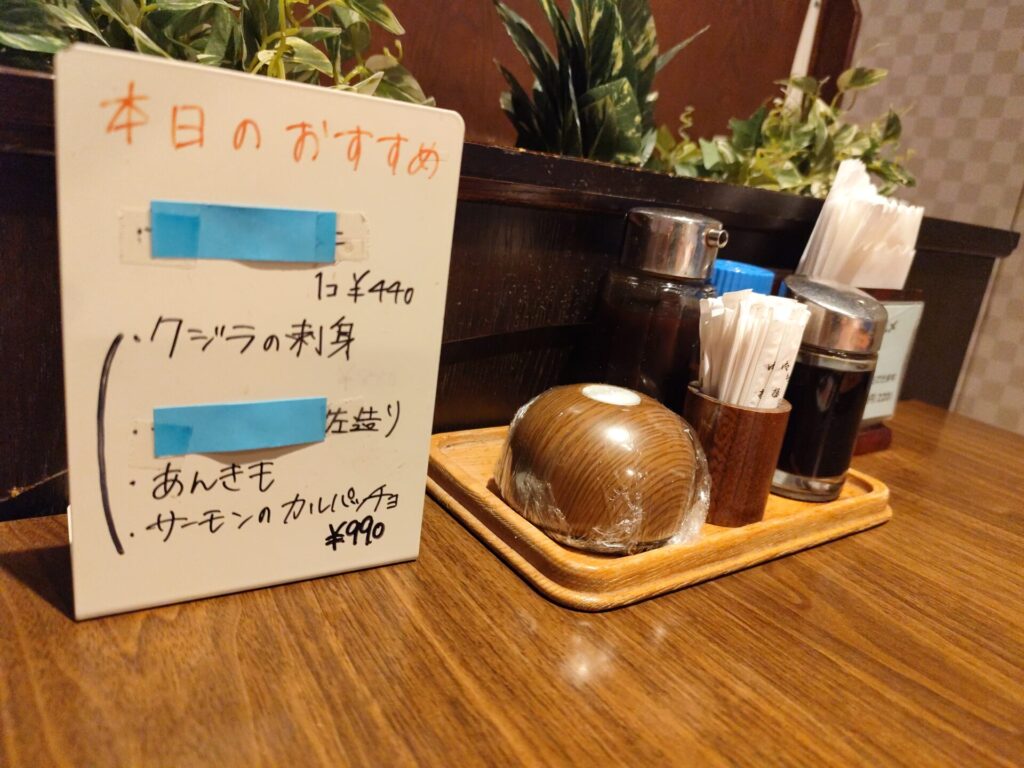 本日のおすすめ
1コ ¥440
・クジラの刺身
・ 造り
・あんきも
・サーモンのカルパッチョ
¥990